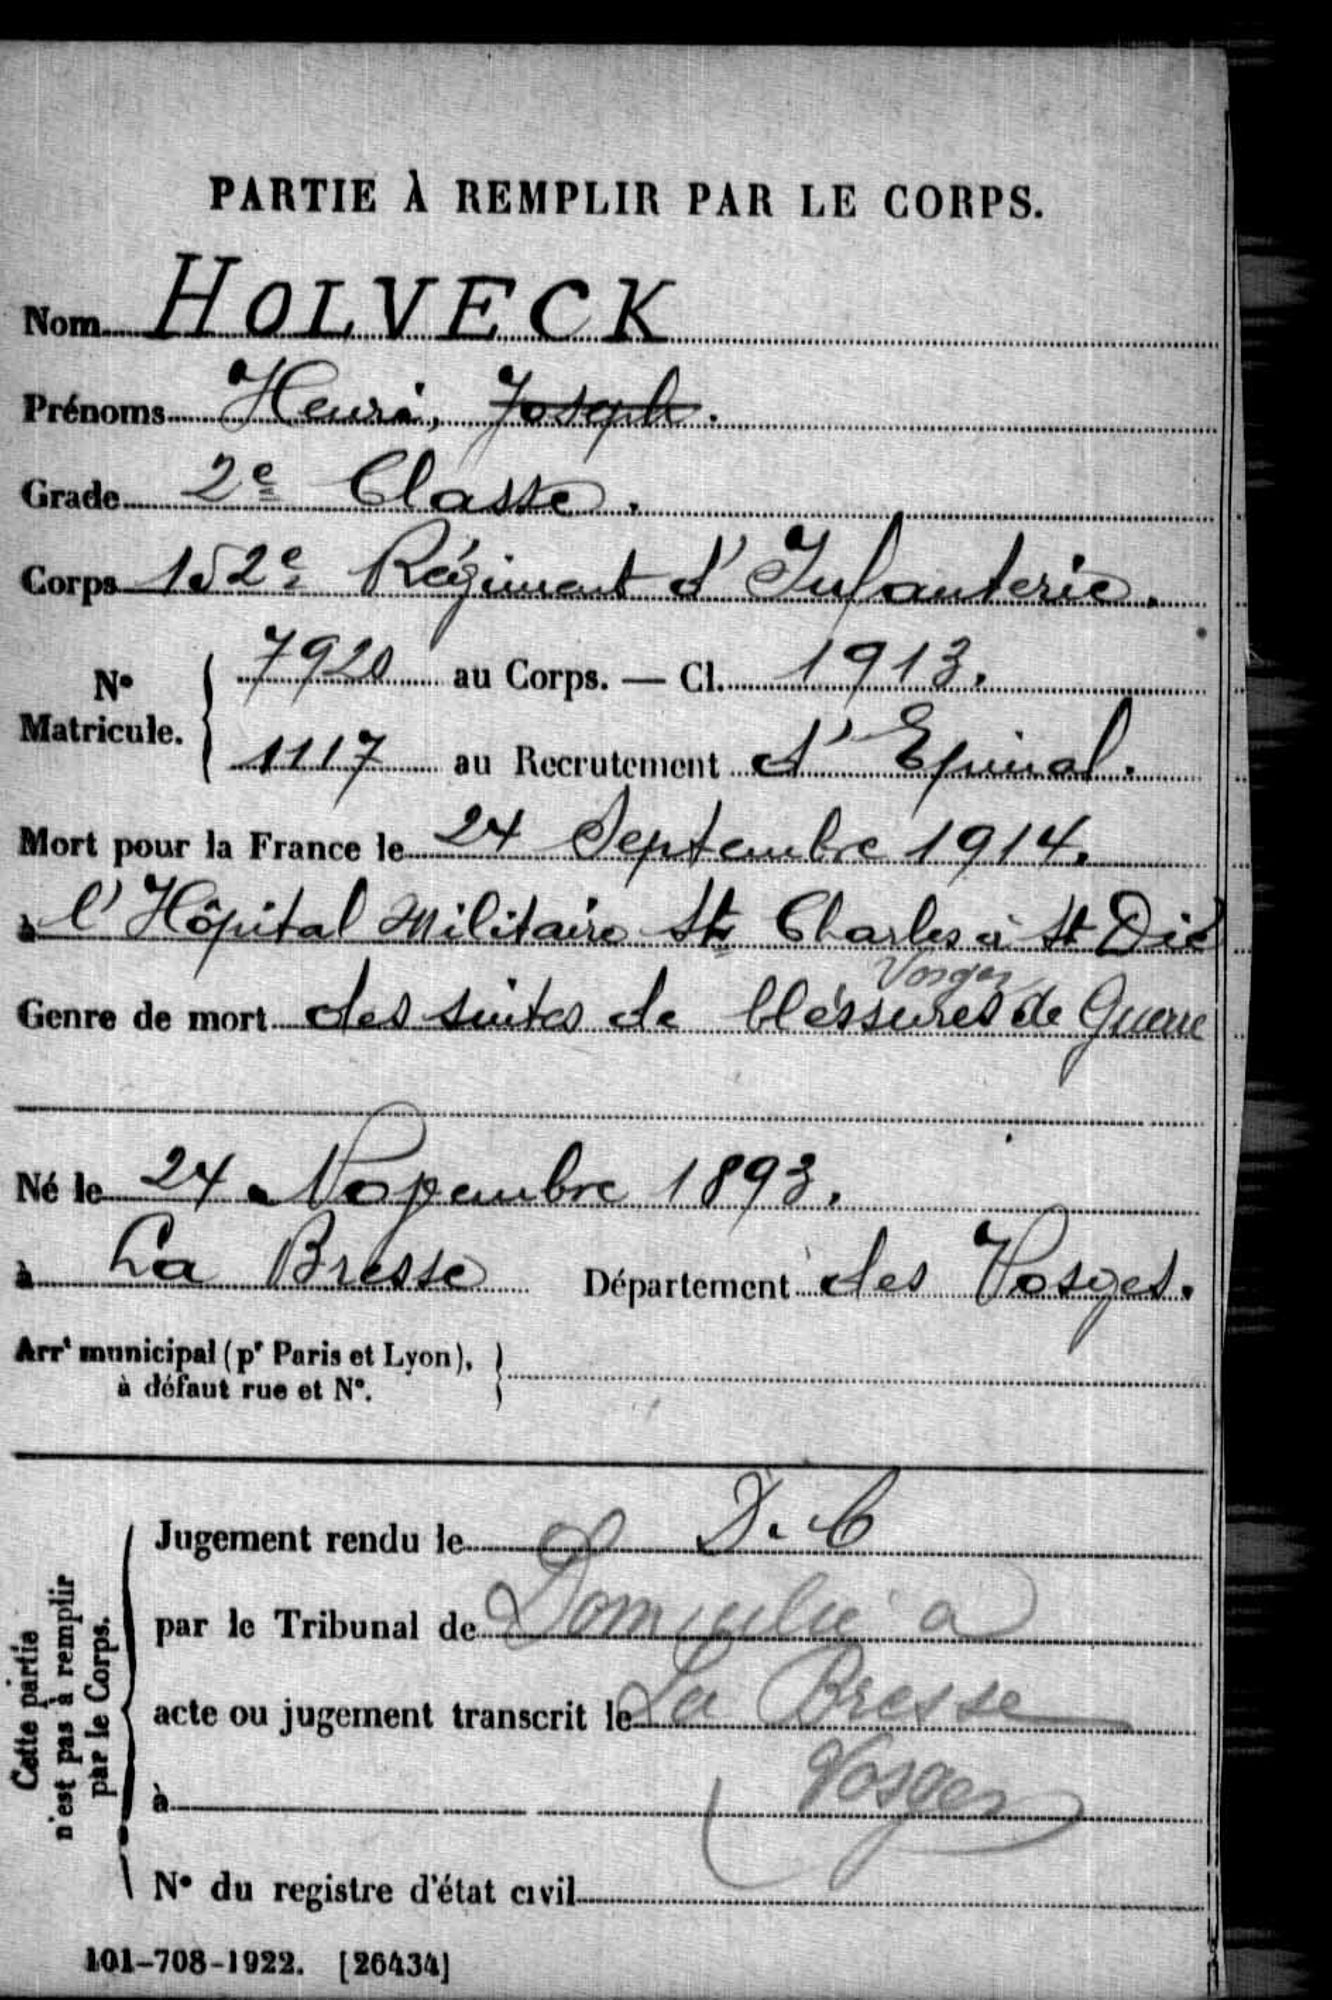 PARTIE À REMPLIR PAR LE CORPS.
Nom HOLVECK
Prénoms Henri, Joseph.
Grade 2e Classe.
Corps 152e Régiment d'Infanterie.
N° Matricule. 7920 au Corps. — Cl. 1913.
1117 au Recrutement d'Epinal.
Mort pour la France le 24 Septembre 1914.
à l'Hôpital Militaire St Charles à St Dié
Vosges
Genre de mort des suites de bléssures de Guerre
Né le 24 Novembre 1893.
à La Bresse Département des Vosges.
Arrt municipal (pr Paris et Lyon),
à défaut rue et N°.
Cette partie
n'est pas à remplir
par le Corps.
Jugement rendu le D. C
par le Tribunal de Domicilié a
acte ou jugement transcrit le La Bresse
à Vosges
N° du registre d'état civil
101-708-1922. [26434]